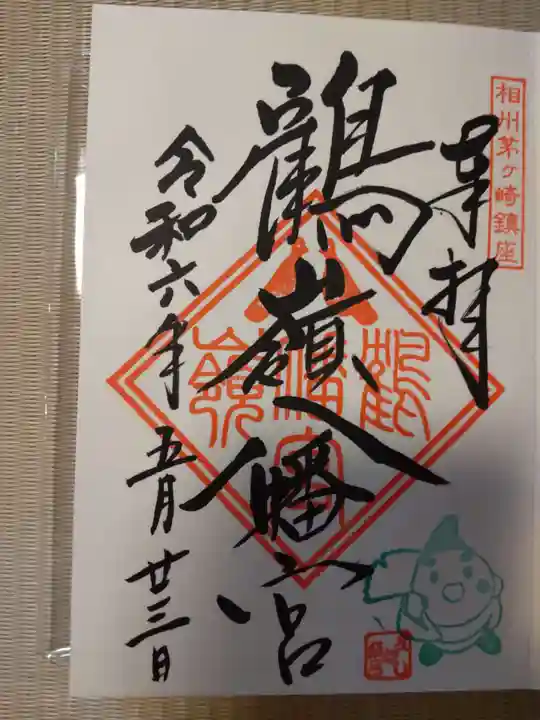 相州茅ヶ崎鎮座
奉拝
鶴嶺八幡宮
令和六年五月廿三日